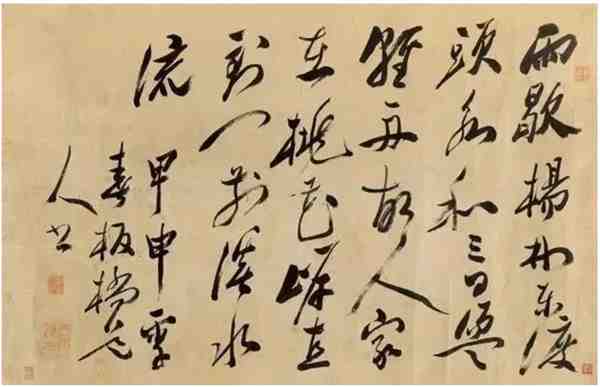 雨歇楊林東渡
頭永和三日盪
輕舟故人家
在桃花岸直
到門前溪水
流
甲申季
春板橋老
人書